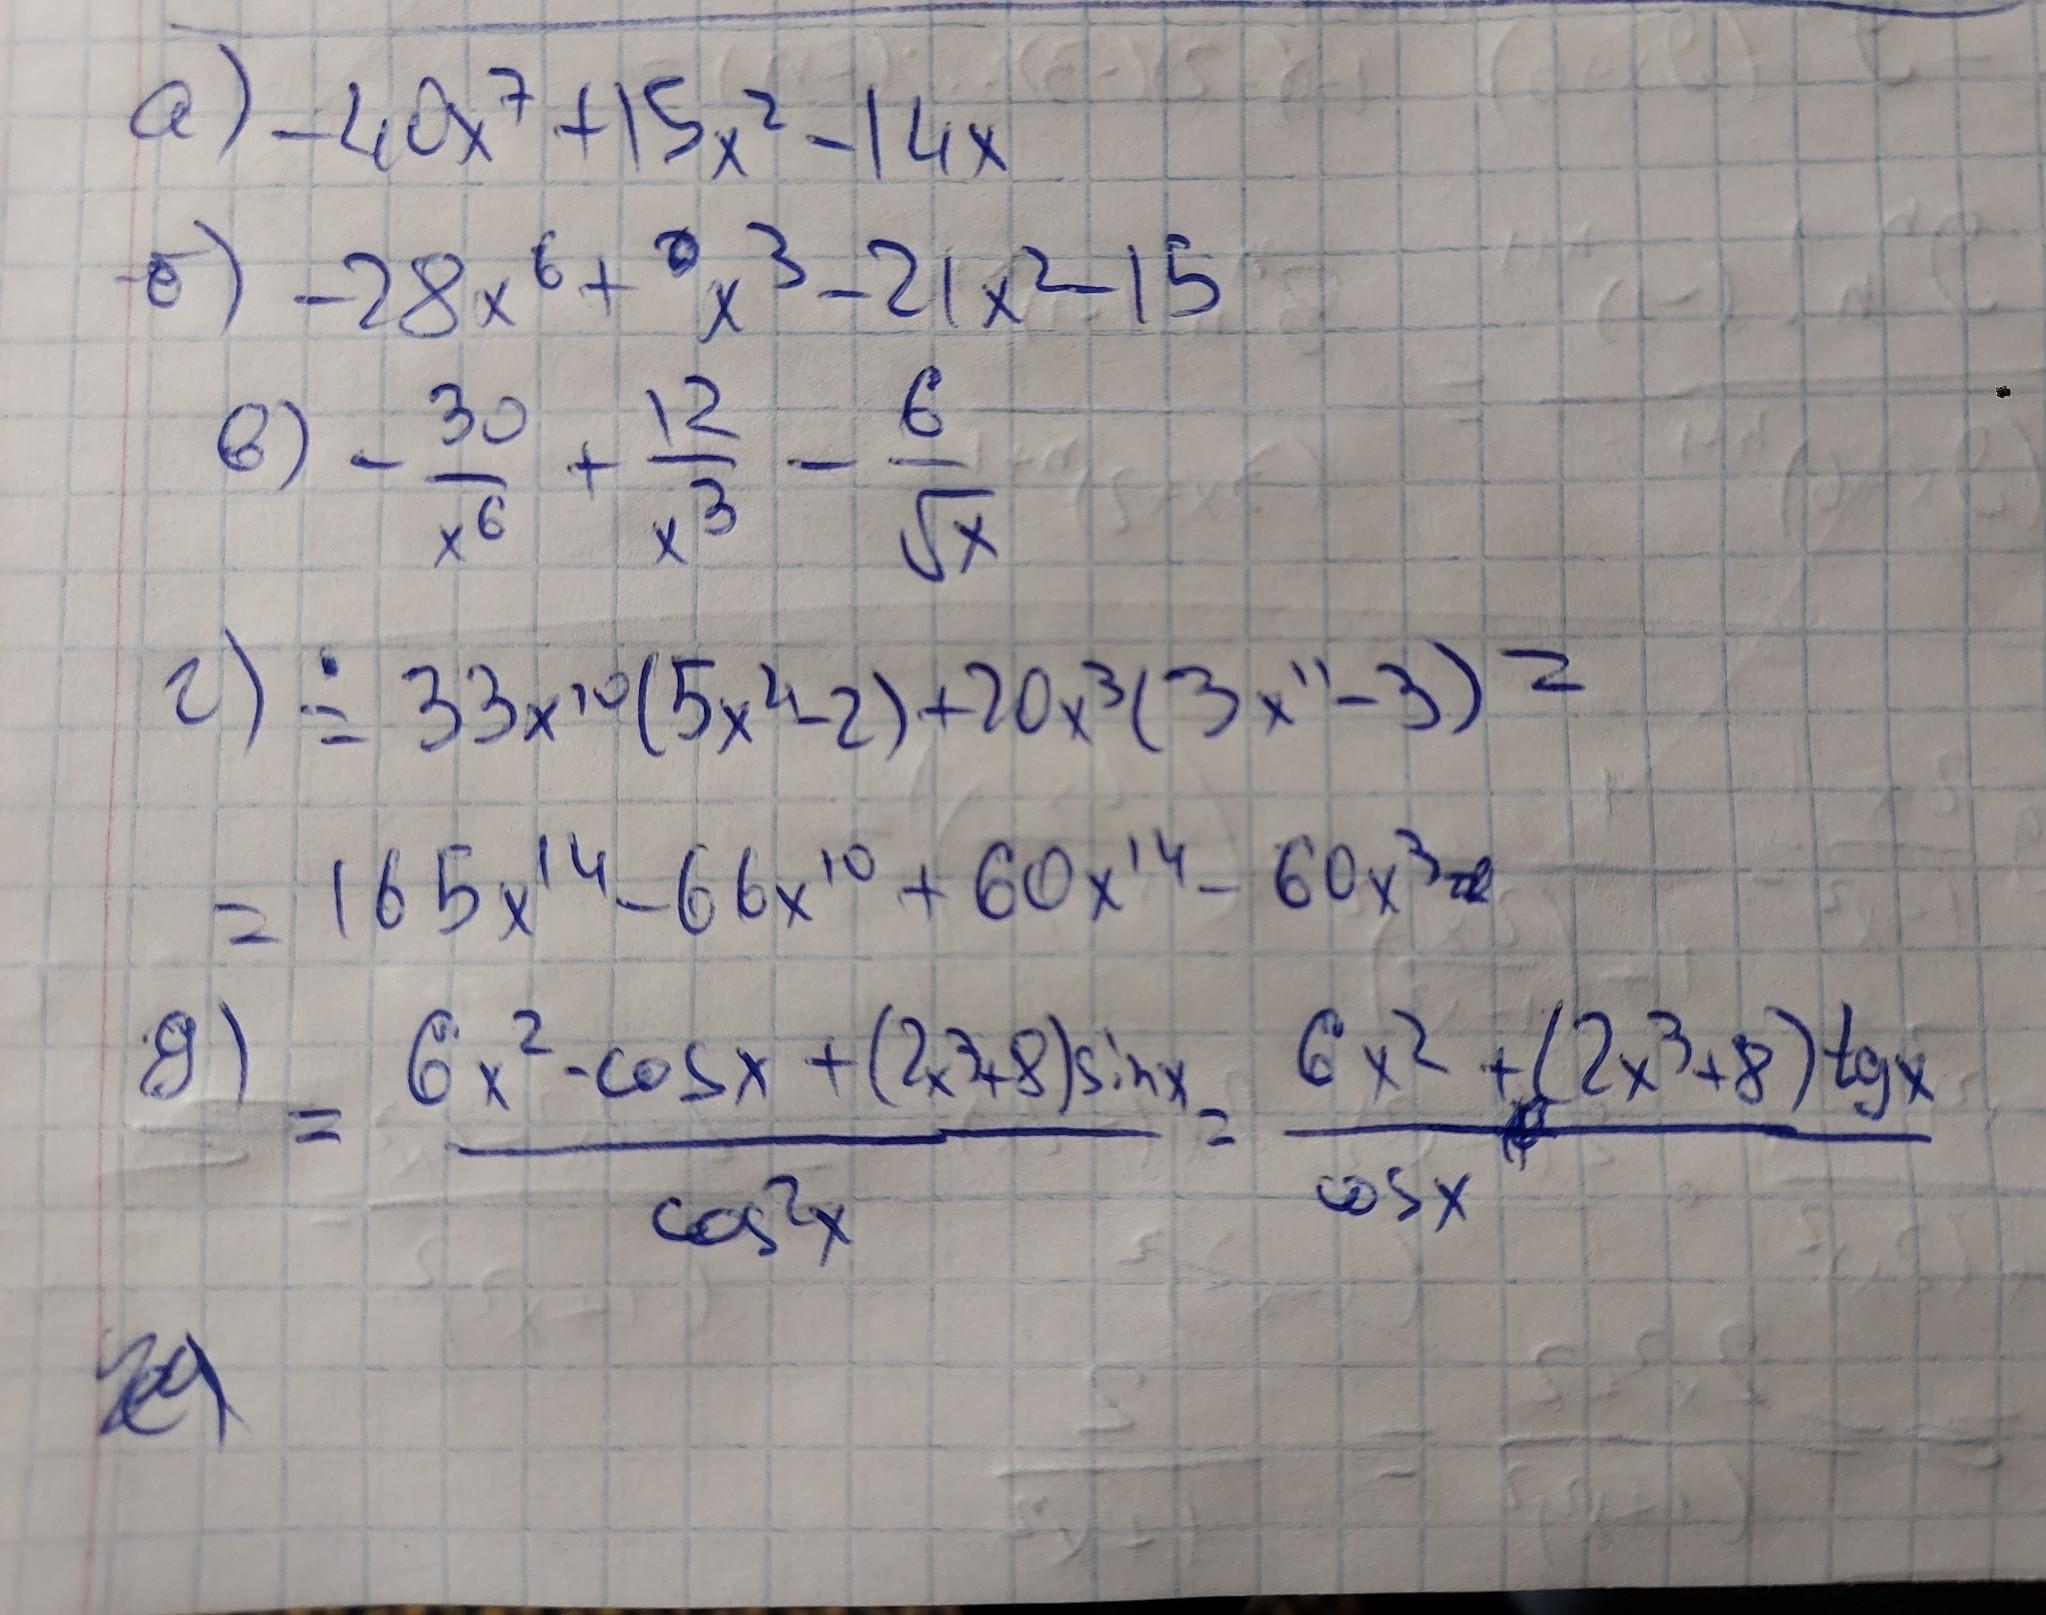 а) -40x⁷ +15x² -14x
б) -28x⁶ + x³ -21x² -15
в) - 30/x⁶ + 12/x³ - 6/√x
г) = 33x¹⁰(5x⁴-2)+20x³(3x¹¹-3) =
= 165x¹⁴ -66x¹⁰ + 60x¹⁴ - 60x³
д) = (6x² · cosx + (2x³+8)sinx)/cos²x = (6x² + (2x³+8)tgx)/cosx